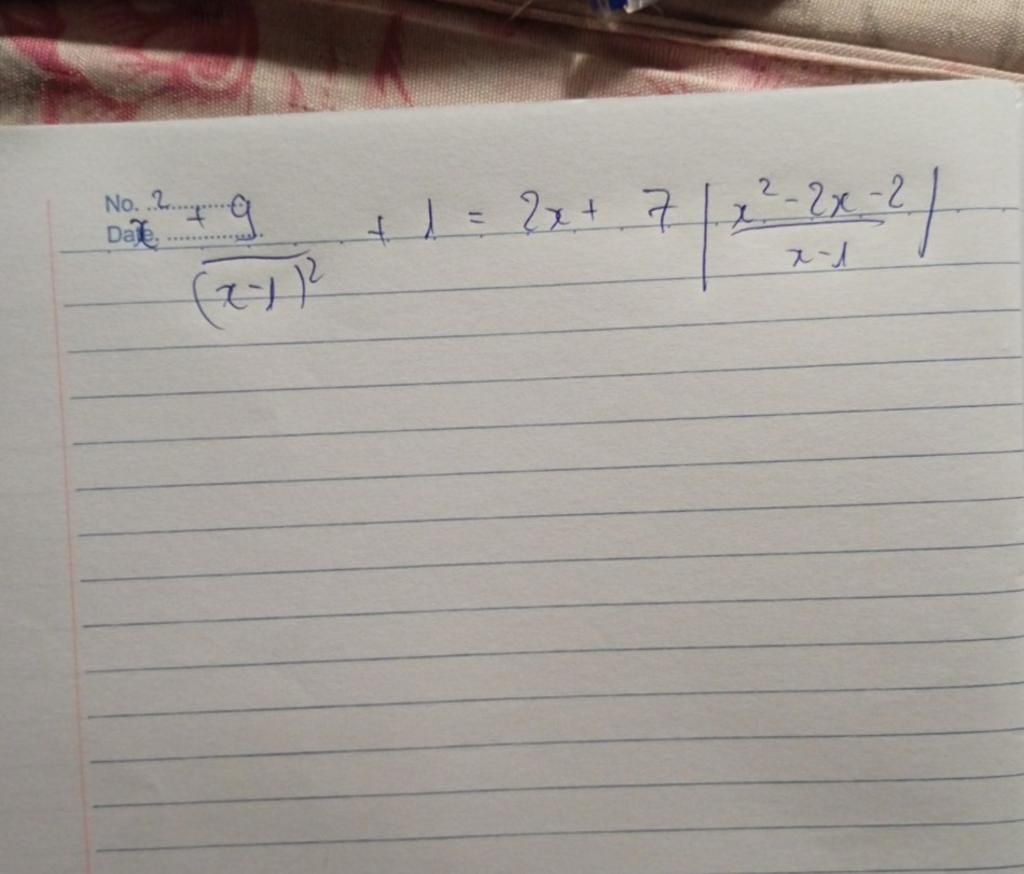 No. ..................
Date. ..................
x² + 9/(x-1)² + 1 = 2x + 7 |x²-2x-2/x-1|